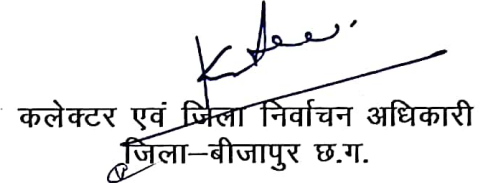 कलेक्टर एवं जिला निर्वाचन अधिकारी
जिला–बीजापुर छ.ग.